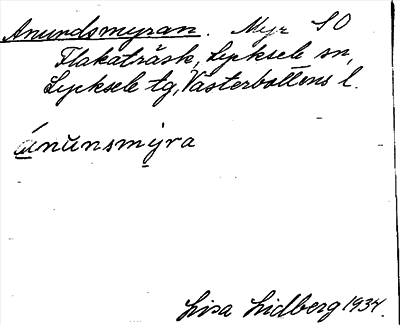 Anundsmyran. Myr SO
Flakaträsk, Lycksele sn,
Lycksele tg, Västerbottens l.
ánu̇nsmyra
Lisa Lidberg 1934.